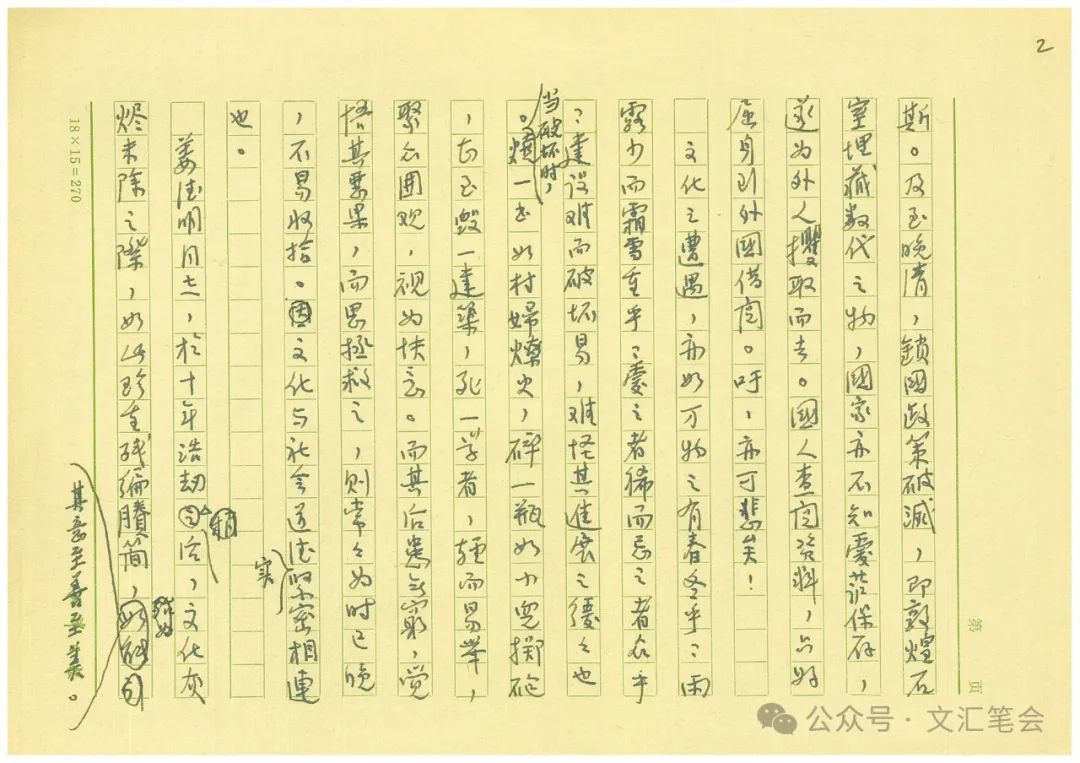 2
斯。及至晚清，鎖國政策破滅，即敦煌石
室埋藏数代之物，國家亦不知爱護保存，
遂为外人攫取而去。國人查閱资料，只好
屈身到外國借閱。吁，亦可悲矣！
文化之遭遇，亦如万物之有春冬乎：雨
露少而霜雪重乎：爱之者稀而忌之者众乎
：建设难而破坏易，难怪其進展之缓缓也
。当破坏时，燒一书如村婦燎火，碎一瓶如小兒掷砲
，甚至毁一建築，死一学者，輕而易举，
聚众围观，视为快意。而其后患无窮，觉
悟其恶果，而思拯救之，则常常为时已晚
，不易收拾。文化与社会道德实緊密相連
也。
姜德明同志，於十年浩劫稍后，文化灰
烬未除之際，如此珍重残编賸简，
其意至善至美。
18×15=270
第 页
公众号·文汇笔会